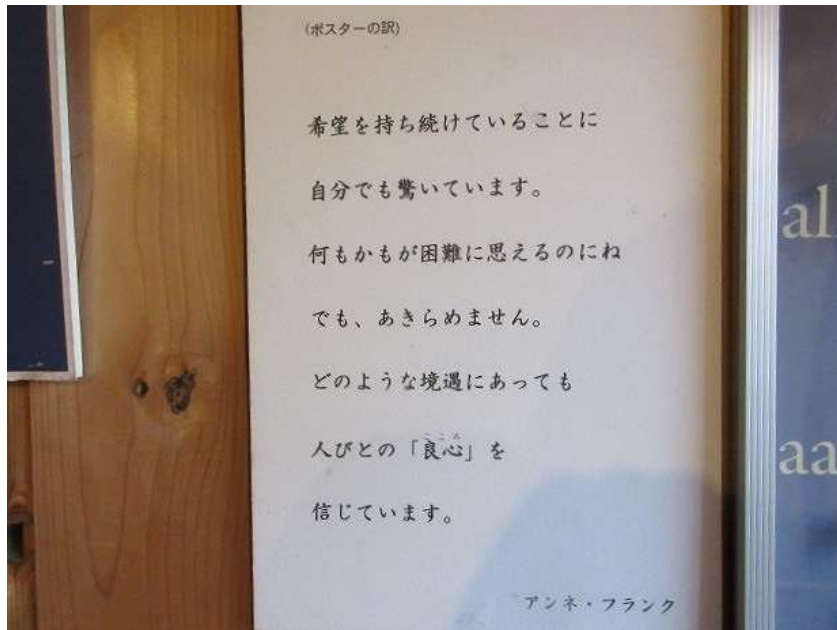 (ポスターの訳)
希望を持ち続けていることに
自分でも驚いています。
何もかもが困難に思えるのにね
でも、あきらめません。
どのような境遇にあっても
人びとの「良心」を
信じています。
アンネ・フランク
al
aa